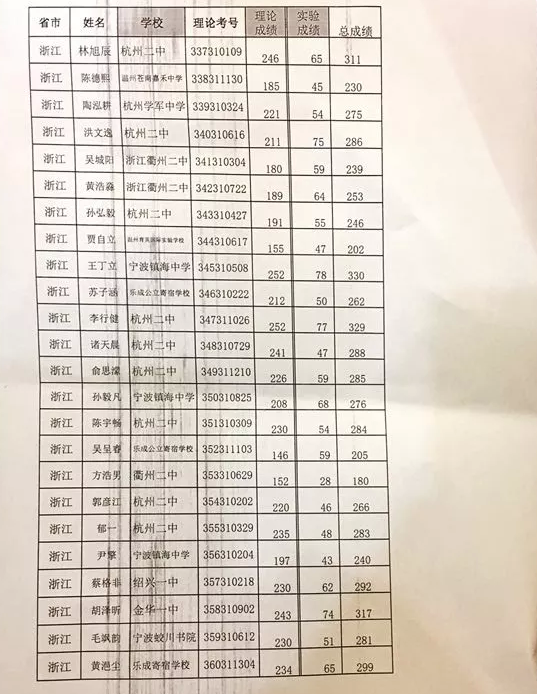 省市 姓名 学校 理论考号 理论成绩 实验成绩 总成绩
浙江 林旭辰 杭州二中 337310109 246 65 311
浙江 陈德熙 温州苍南嘉禾中学 338311130 185 45 230
浙江 陶泓耕 杭州学军中学 339310324 221 54 275
浙江 洪文逸 杭州二中 340310616 211 75 286
浙江 吴城阳 浙江衢州二中 341310304 180 59 239
浙江 黄浩淼 浙江衢州二中 342310722 189 64 253
浙江 孙弘毅 杭州二中 343310427 191 55 246
浙江 贾自立 温州育英国际实验学校 344310617 155 47 202
浙江 王丁立 宁波镇海中学 345310508 252 78 330
浙江 苏子涵 乐成公立寄宿学校 346310222 212 50 262
浙江 李行健 杭州二中 347311026 252 77 329
浙江 诸天晨 杭州二中 348310729 241 47 288
浙江 俞思濛 杭州二中 349311210 226 59 285
浙江 孙毅凡 宁波镇海中学 350310825 208 68 276
浙江 陈宇畅 杭州二中 351310309 230 54 284
浙江 吴呈春 乐成公立寄宿学校 352311103 146 59 205
浙江 方浩男 衢州二中 353310629 152 28 180
浙江 郭彦江 杭州二中 354310202 220 46 266
浙江 郁一 杭州二中 355310329 235 48 283
浙江 尹擎 宁波镇海中学 356310204 197 43 240
浙江 蔡格非 绍兴一中 357310218 230 62 292
浙江 胡泽昕 金华一中 358310902 243 74 317
浙江 毛飒韵 宁波蛟川书院 359310612 230 51 281
浙江 黄浥尘 乐成寄宿学校 360311304 234 65 299